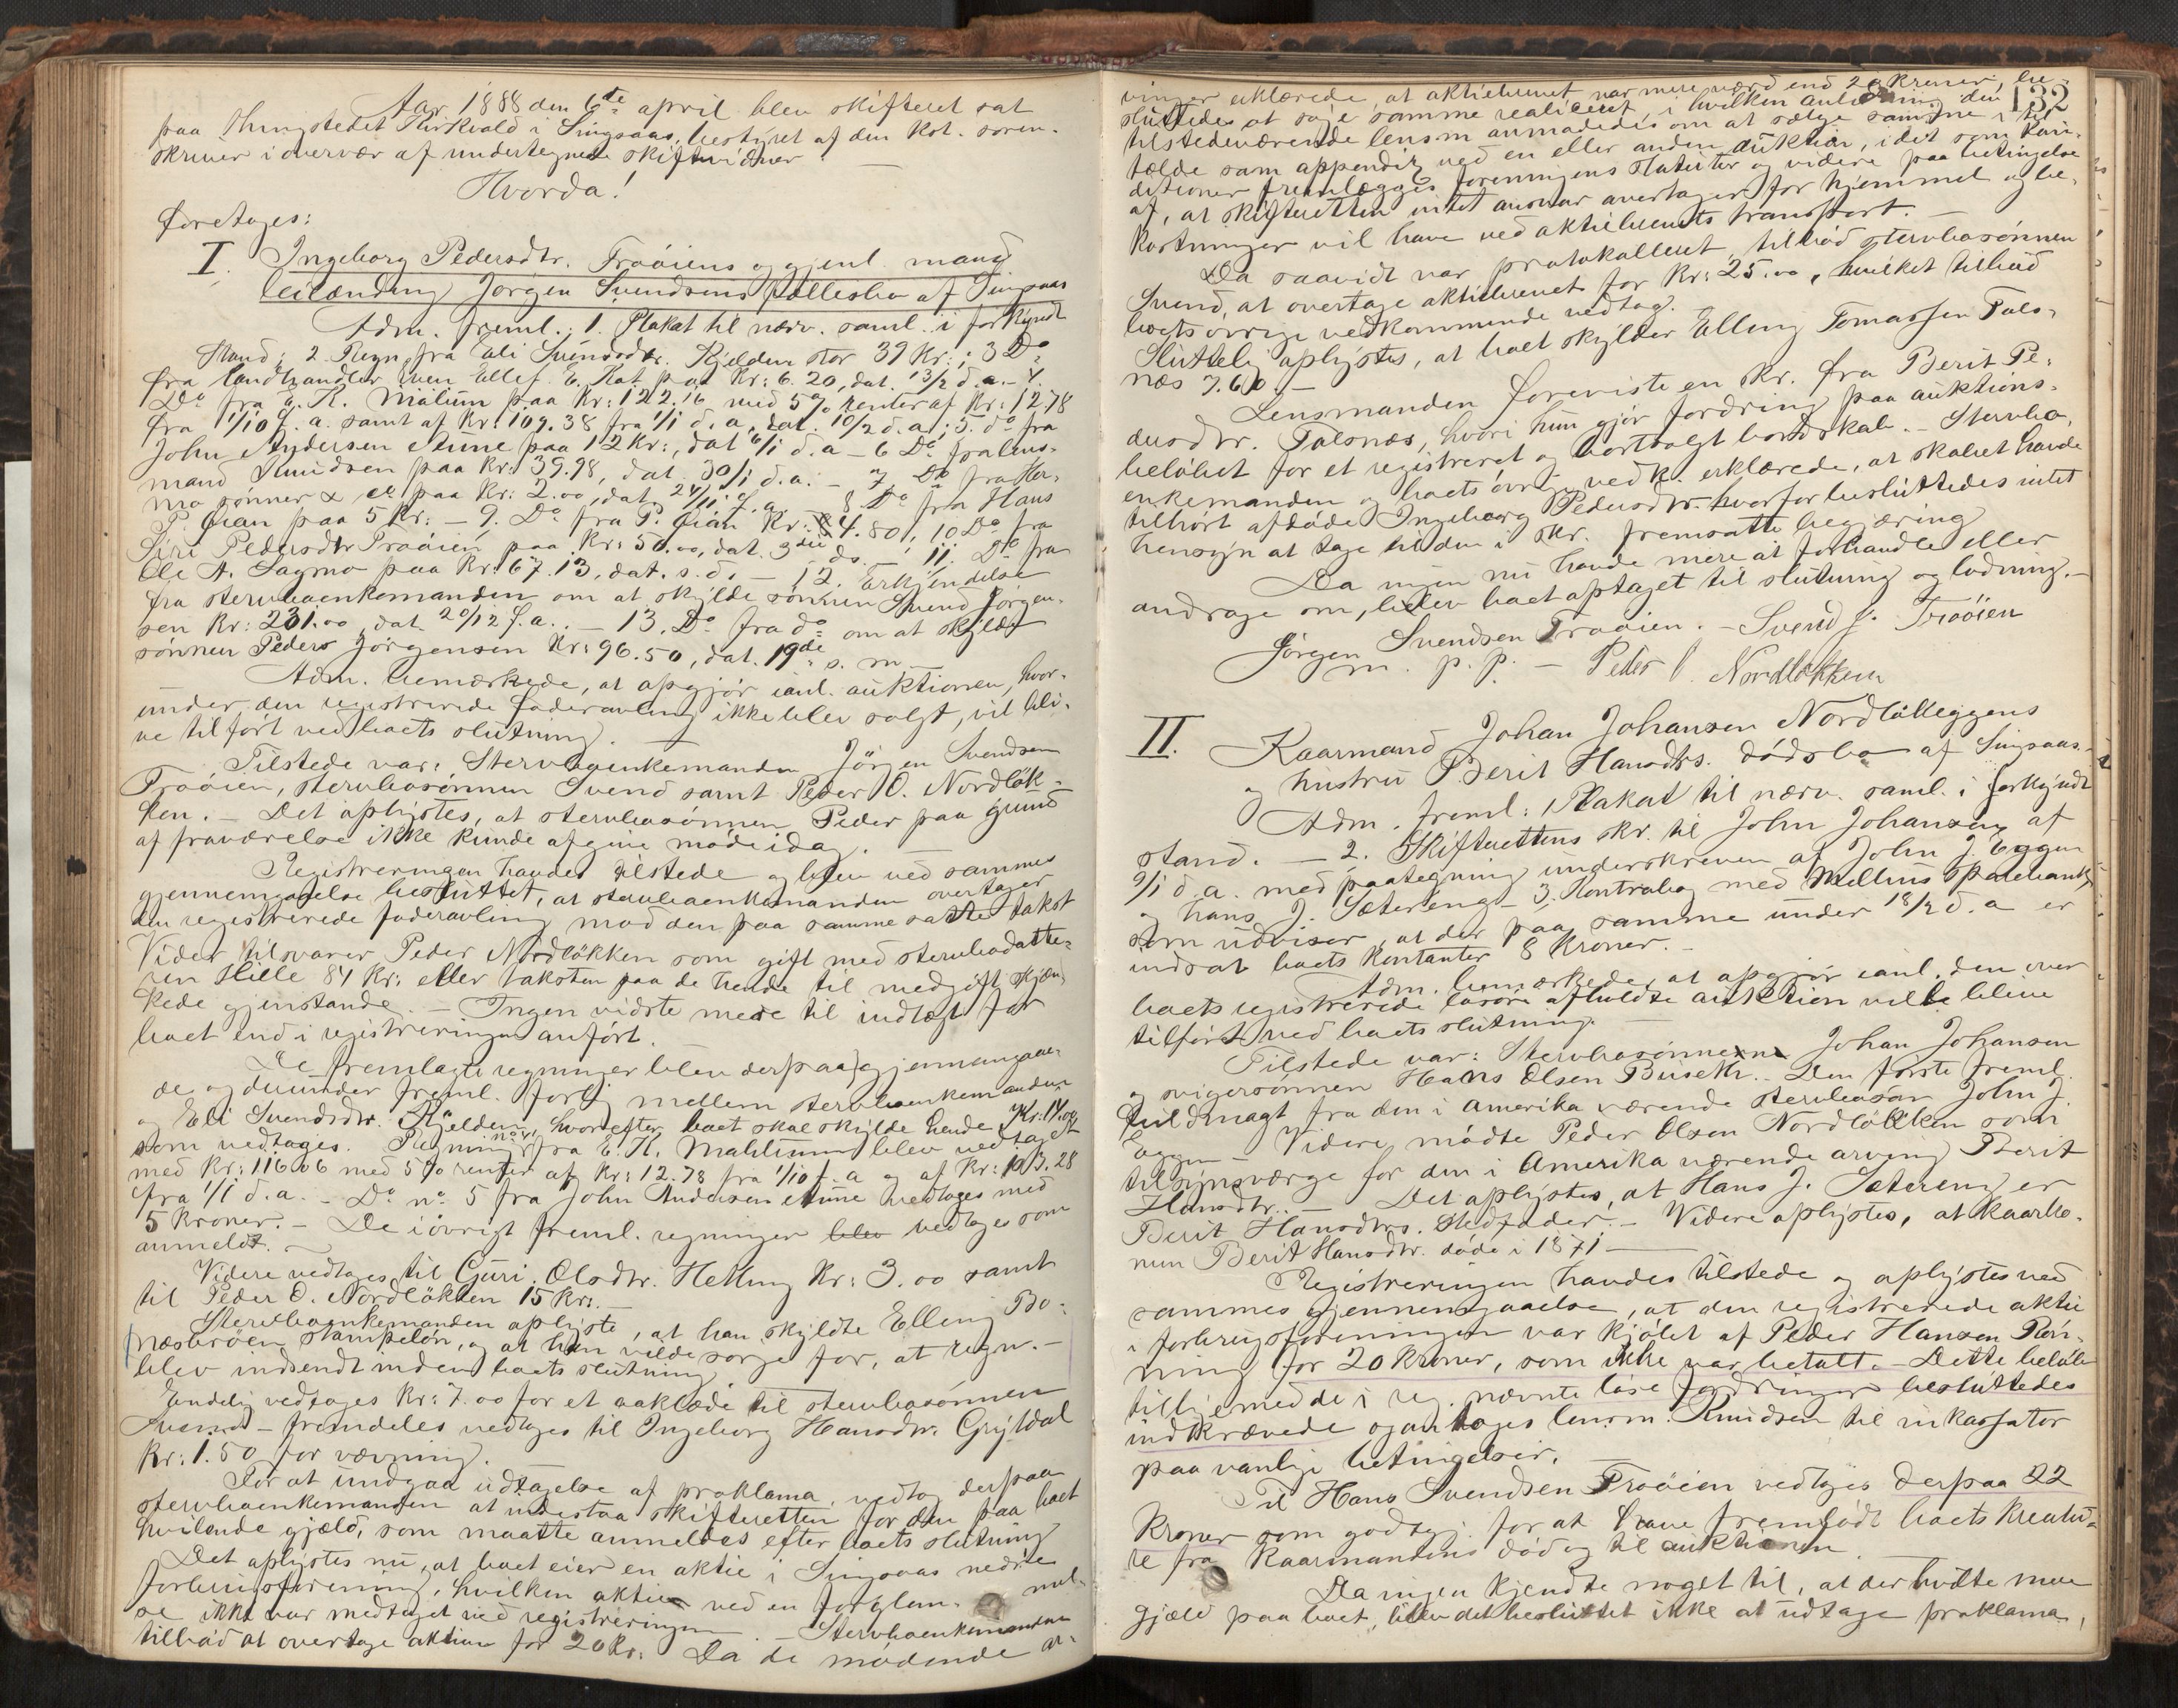 Aar 1888 den 6te april blev skifteret sat
paa thingstedet Kirkvold i Singsaas, bestyret af den kst. soren-
skriver i overvær af undertegnede skiftevidner
Hvorda!
foretages:
I. Ingeborg Pedersdtr. Troøiens og gjenl. mand
leilænding Jørgen Svendsens fællesbo af Singsaas
Adm. freml.: 1. Plakat til nærv. saml. i forkyndt
stand; 2. Regn. fra Eli Svendsdtr. Kjelden stor 39 Kr.; 3 Do
fra landhandler Even Ellef. E. Kot. paa Kr: 6.20, dat. 13/2 d.a. - 4.
Do fra E. K. Malum paa Kr: 122.16 med 5% renter af Kr: 12.78
fra 1/10 f.a. samt af Kr: 109.38 fra 1/1 d.a., dat. 10/2 d.a.; 5. do fra
John Andersen Aune paa 12 Kr:, dat 6/1 d.a - 6 Do fra lens-
mand Knudsen paa Kr: 39.98, dat. 30/1 d.a. - 7. Do fra Her-
mo sønner & Co paa Kr: 2.00, dat 24/11 f.a. 8 Do fra Hans
P. Gian paa 5 Kr: - 9. Do fra P. Gian Kr: 4.80, 10 Do fra
Siri Pedersdtr Troøien paa Kr: 50.00, dat. 3die ds. - 11. Do fra
Ole A. Sagmo paa Kr: 67.13, dat. s.d. - 12. Erkjendelse
fra stervboenkemanden om at skylde sønnen Svend Jørgen-
sen Kr: 231.00, dat 20/12 f.a. - 13. Do fra do om at skylde
sønnen Peder Jørgensen Kr: 96.50, dat. 19de s.m.
Adm. bemærkede, at opgjør ianl. auktionen, hvor-
under den registrerede foderavling ikke blev solgt, vil bli-
ve tilført ved boets slutning.
Tilstede var: Stervboenkemanden Jørgen Svendsen
Troøien, stervbosønnen Svend samt Peder O. Nordløk-
ken. - Det oplystes, at stervbosønnen Peder paa grund
af fraværelse ikke kunde afgive møde idag.
Registreringen havdes tilstede og blev ved sammes
gjennemgaaelse besluttet, at stervboenkemanden overtager
den registrerede foderavling mod den paa samme satte takst
Videre tilsvarer Peder Nordløkken som gift med stervbodatte-
ren Hille 84 Kr: eller taksten paa de hende til medgift skjæn-
kede gjenstande. - Ingen vidste mere til indtægt for
boet end i registreringen anført.
De fremlagte regninger blev derpaa gjennemgaae-
de og derunder freml. forlig mellem stervboenkemanden
og Eli Svendsdtr. Kjelden, hvorefter boet skal skylde hende Kr: 14.00
som vedtages. Regning no 4 fra E. K. Mahlum blev vedtaget
med Kr: 116.06 med 5% renter af Kr: 12.78 fra 1/10 f.a og af Kr: 103.28
fra 1/1 d.a. - Do no 5 fra John Andersen Aune vedtages med
5 kroner. - De iøvrigt freml. regninger blev vedtages som
anmeldt.
Videre vedtages til Guri Olsdtr. Hetling Kr: 3.00 samt
til Peder O. Nordløkken 15 Kr:
Stervboenkemanden oplyste, at han skyldte Elling Bo-
næsbrøen stampeløn, og at han vilde sørge for, at regn. -
blev indsendt inden boets slutning.
Endelig vedtages Kr: 7.00 for et aaklæde til stervbosønnen
Svend - fremdeles vedtages til Ingeborg Hansdtr. Grytdal
Kr: 1.50 for vævning.
For at undgaa udtagelse af proklama, vedtog derpaa
stervboenkemanden at indestaa skifteretten for den paa boet
hvilende gjæld, som maatte anmeldes efter boets slutning
Det oplystes nu, at boet eier en aktie i Singsaas nedre
forbrugsforening, hvilken aktie ved en forglem-
mel-
se ikke var medtaget ved registreringen. - Stervboenkemanden
tilbød at overtage aktien for 20 Kr: Da de mødende ar-
132
vinger erklærede, at aktiebrevet var mere værd end 20 kroner, be-
sluttedes at søge samme realiseret, i hvilken anledning den
tilstedeværende lensm anmodedes om at sælge samme i til-
fælde som appendix ved en eller anden auktion, idet som kon-
ditioner fremlægges foreningens statuter og videre paa betingelse
af, at skifteretten intet ansvar overtager for hjemmel og be-
kostninger vil have ved aktiebrevets transport.
Da saavidt var protokolleret, tilbød stervbosønnen
Svend, at overtage aktiebrevet for Kr: 25.00, hvilket tilbud
boets øvrige vedkommende vedtog.
Sluttelig oplystes, at boet skylder Elling Tomassen Tals-
næs 7.60.
Lensmanden foreviste en skr. fra Berit Pe-
dersdtr. Talsnæs, hvori hun gjør fordring paa auktions-
beløbet for et registreret og bortsolgt bordskab. - Stervbo-
enkemanden og boets øvrige vedk. erklærede, at skabet havde
tilhørt afdøde Ingeborg Pedersdtr. hvorfor besluttedes intet
hensyn at tage til den i skr. fremsatte begjæring
Da ingen nu havde mere at forhandle eller
andrage om, blev boet optaget til slutning og lodning. -
Jørgen Svendsen Troøien. - Svend J. Troøien
m. p. p. - Peder O. Nordløkken
II. Kaarmand Johan Johansen Nordløkeggens
og hustru Berit Hansdtrs. dødsbo af Singsaas.
Adm. freml: 1 Plakat til nærv. saml. i forkyndt
stand. - 2. Skifterettens skr. til John Johansen af
9/1 d.a. med paategning underskreven af John J. Eggen
og Hans J. Sætereng - 3. Kontrabog med Meldals sparebank
som udviser, at der paa samme under 18/2 d.a er
indsat boets kontanter 8 kroner. -
Adm. bemærkede, at opgjør ianl. den over
boets registrerede løsøre afholdte auktion vilde blive
tilført ved boets slutning.
Tilstede var: Stervbosønnen Johan Johansen
og svigersønnen Hans Olsen Busek. - Den første freml.
fuldmagt fra den i Amerika værende stervbosøn John J.
Eggen - Videre mødte Peder Olsen Nordløkken som
tilsynsværge for den i Amerika værende arving Berit
Hansdtr. - Det oplystes, at Hans J. Sætereng er
Berit Hansdtrs. stedfader. - Videre oplystes, at kaarko-
nen Berit Hansdtr. døde i 1871
Registreringen havdes tilstede og oplystes ved
sammes gjennemgaaelse, at den registrerede aktie
i forbrugsforeningen var kjøbt af Peder Hansen Røn-
ning for 20 kroner, som ikke var betalt. - Dette beløb
tilligemed de i reg. nævnte løse fordringer besluttedes
indkrævede og antoges lensm. Knudsen til inkassator
paa vanlige betingelser.
Til Hans Svendsen Troøien vedtoges derpaa 22
kroner som godtgj. for at have fremfødt boets kreatu-
re fra kaarmandens død og til auktionen
Da ingen kjendte noget til, at der hvilte mere
gjæld paa boet, blev det besluttet ikke at udtage proklama,